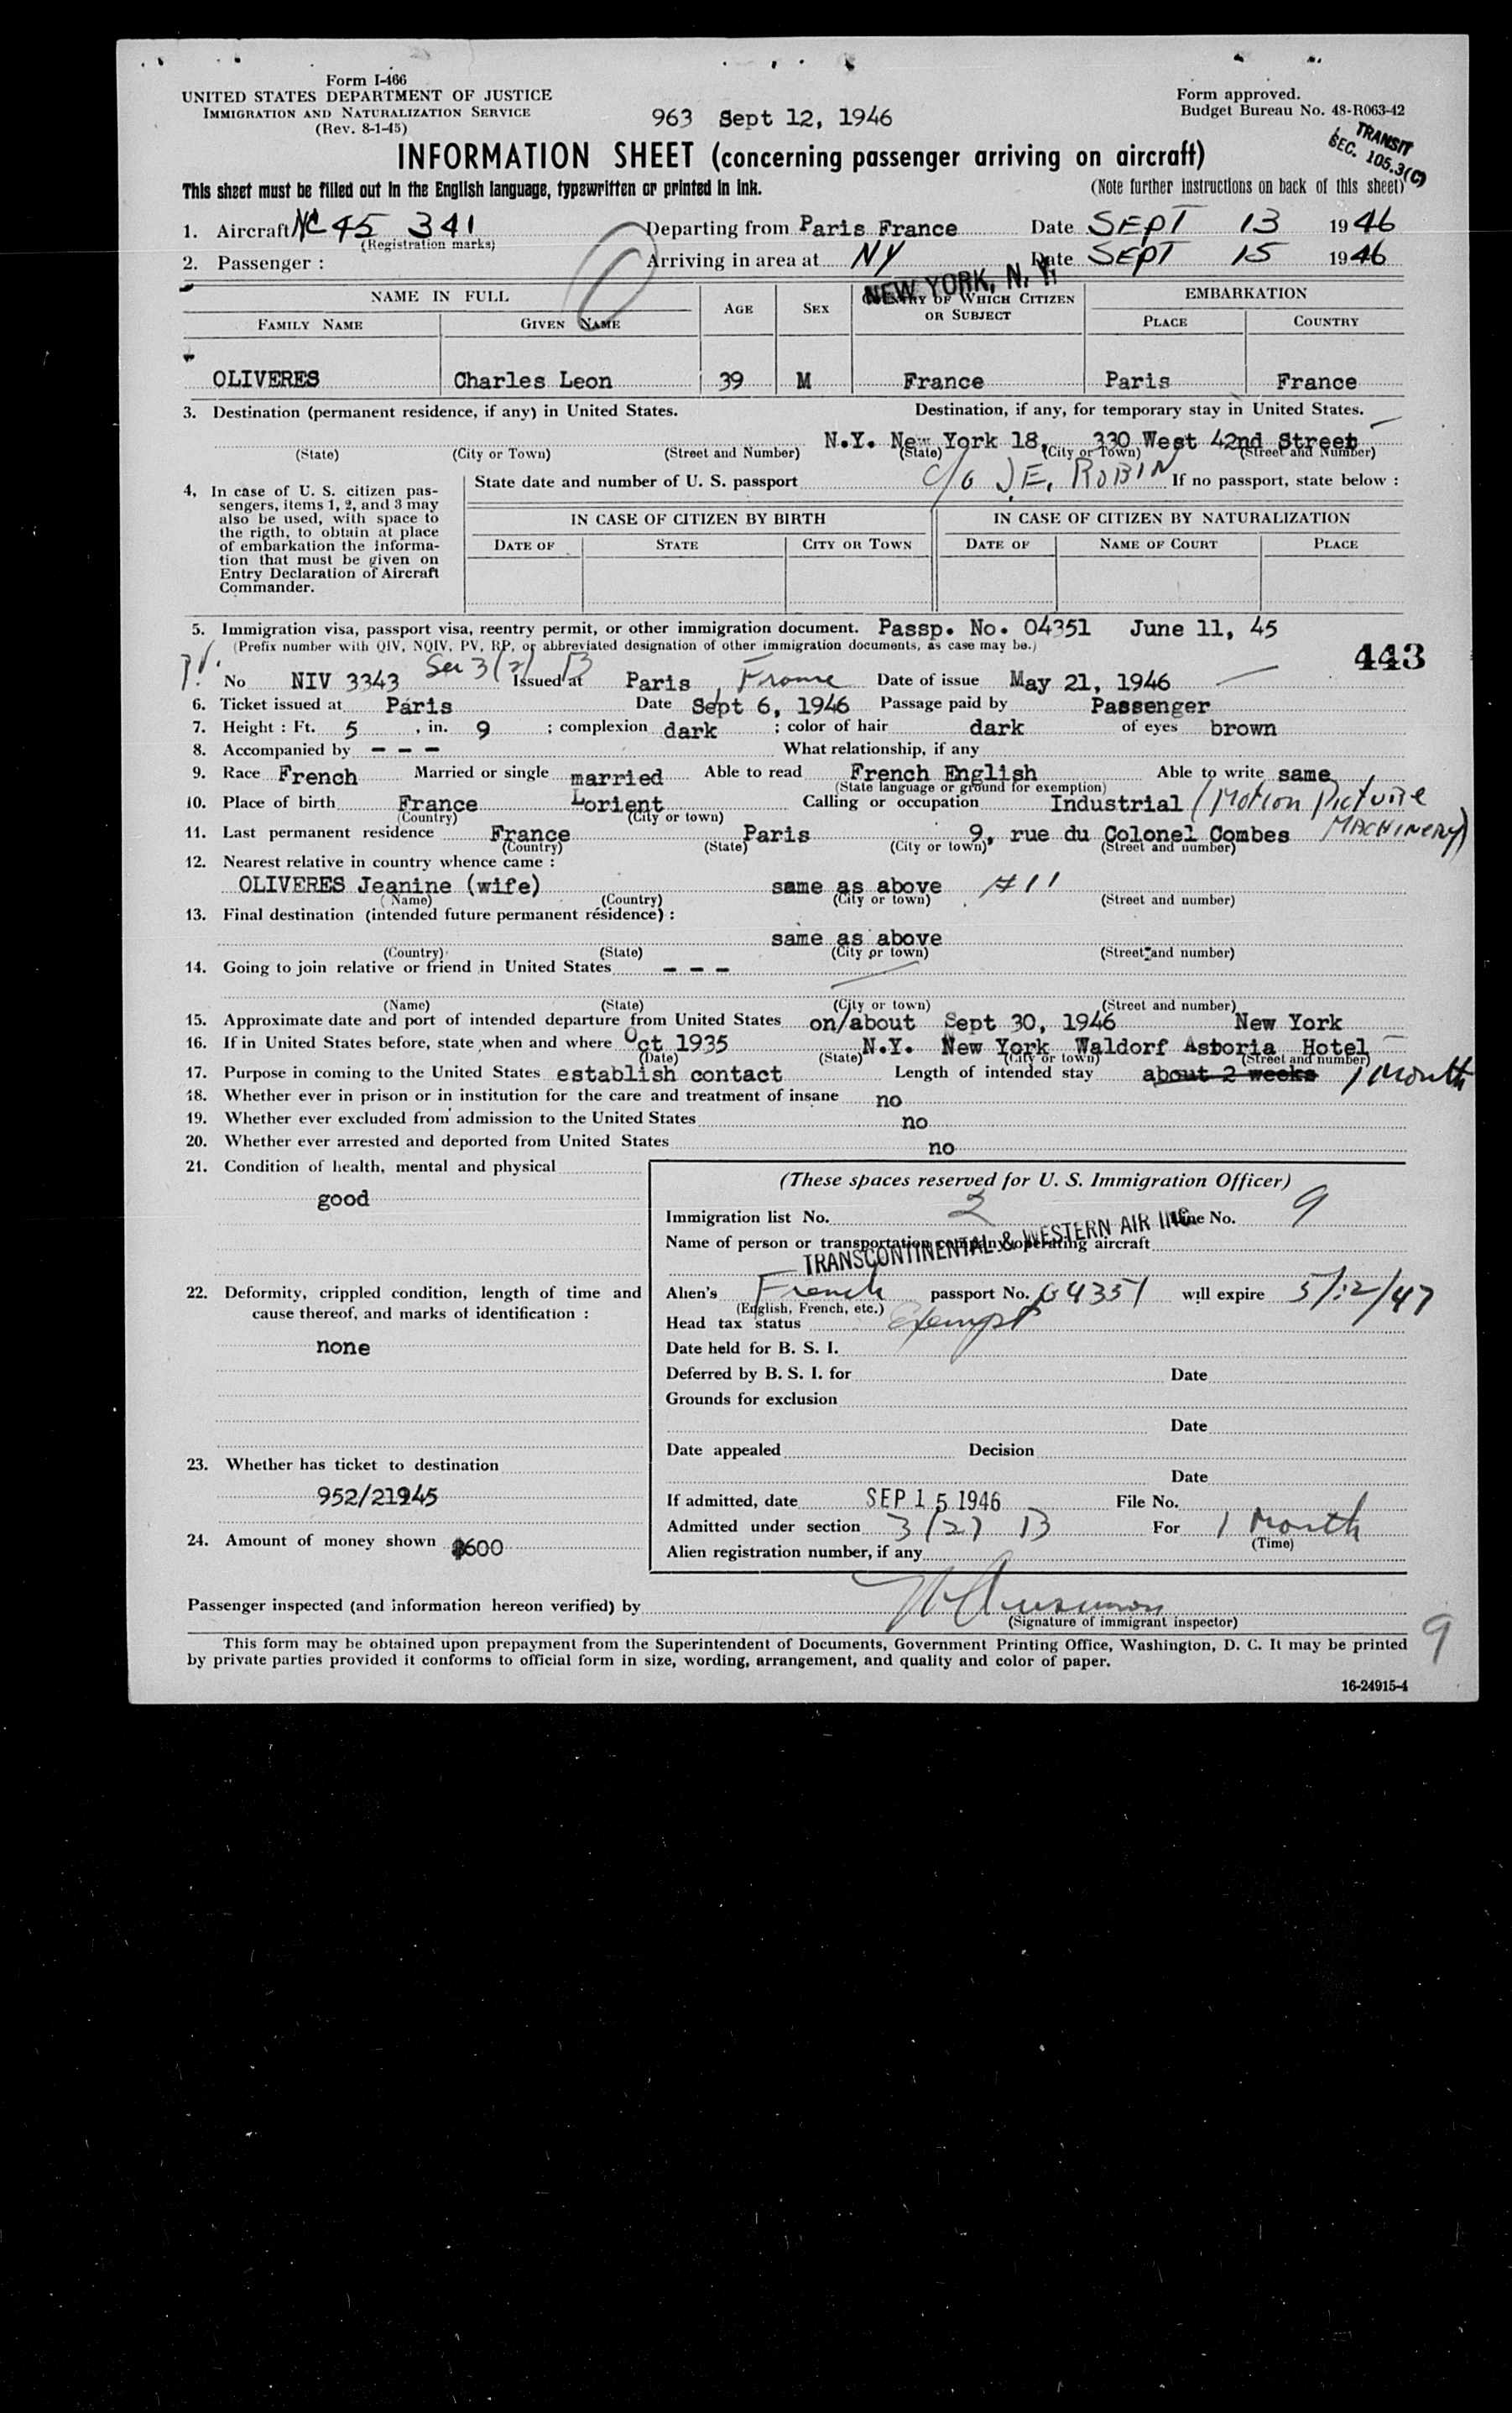 Form I-466
UNITED STATES DEPARTMENT OF JUSTICE
IMMIGRATION AND NATURALIZATION SERVICE
(Rev. 8-1-45)
963 Sept 12, 1946
Form approved.
Budget Bureau No. 48-R063-42
TRANSIT
SEC. 105.3(C)
INFORMATION SHEET (concerning passenger arriving on aircraft)
This sheet must be filled out in the English language, typewritten or printed in ink. (Note further instructions on back of this sheet)
1. Aircraft NC 45 341 Departing from Paris France Date SEPT 13 1946
(Registration marks)
2. Passenger : Arriving in area at NY Date SEPT 15 1946
NEW YORK, N. Y.
NAME IN FULL AGE SEX COUNTRY OF WHICH CITIZEN OR SUBJECT EMBARKATION
FAMILY NAME GIVEN NAME PLACE COUNTRY
OLIVERES Charles Leon 39 M France Paris France
3. Destination (permanent residence, if any) in United States. Destination, if any, for temporary stay in United States.
N.Y. New York 18, 330 West 42nd Street
(State) (City or Town) (Street and Number) (State) (City or Town) (Street and Number)
4, In case of U. S. citizen passengers, items 1, 2, and 3 may also be used, with space to the rigth, to obtain at place of embarkation the information that must be given on Entry Declaration of Aircraft Commander.
State date and number of U. S. passport c/o J.E. ROBIN If no passport, state below :
IN CASE OF CITIZEN BY BIRTH IN CASE OF CITIZEN BY NATURALIZATION
DATE OF STATE CITY OR TOWN DATE OF NAME OF COURT PLACE
5. Immigration visa, passport visa, reentry permit, or other immigration document. Passp. No. 04351 June 11, 45
(Prefix number with QIV, NQIV, PV, RP, or abbreviated designation of other immigration documents, as case may be.)
443
No NIV 3343 Sec 3(2) B Issued at Paris, France Date of issue May 21, 1946
6. Ticket issued at Paris Date Sept 6, 1946 Passage paid by Passenger
7. Height : Ft. 5 , in. 9 ; complexion dark ; color of hair dark of eyes brown
8. Accompanied by - - - What relationship, if any
9. Race French Married or single married Able to read French English Able to write same
(State language or ground for exemption)
10. Place of birth France Lorient Calling or occupation Industrial (Motion Picture
(Country) (City or town)
MACHINERY)
11. Last permanent residence France Paris 9, rue du Colonel Combes
(Country) (State) (City or town) (Street and number)
12. Nearest relative in country whence came :
OLIVERES Jeanine (wife) same as above #11
(Name) (Country) (City or town) (Street and number)
13. Final destination (intended future permanent résidence) :
same as above
(Country) (State) (City or town) (Street and number)
14. Going to join relative or friend in United States - - -
(Name) (State) (City or town) (Street and number)
15. Approximate date and port of intended departure from United States on/about Sept 30, 1946 New York
16. If in United States before, state when and where Oct 1935 N.Y. New York Waldorf Astoria Hotel
(Date) (State) (City or town) (Street and number)
17. Purpose in coming to the United States establish contact Length of intended stay about 2 weeks 1 Month
18. Whether ever in prison or in institution for the care and treatment of insane no
19. Whether ever excluded from admission to the United States no
20. Whether ever arrested and deported from United States no
21. Condition of health, mental and physical
good
22. Deformity, crippled condition, length of time and cause thereof, and marks of identification :
none
23. Whether has ticket to destination
952/21945
24. Amount of money shown $600
(These spaces reserved for U. S. Immigration Officer)
Immigration list No. 2 Line No. 9
Name of person or transportation company operating aircraft
TRANSCONTINENTAL & WESTERN AIR INC.
Alien's French passport No. 04351 will expire 5/12/47
(English, French, etc.)
Head tax status Exempt
Date held for B. S. I.
Deferred by B. S. I. for Date
Grounds for exclusion
Date
Date appealed Decision
Date
If admitted, date SEP 15 1946 File No.
Admitted under section 3(2) B For 1 Month
(Time)
Alien registration number, if any
Passenger inspected (and information hereon verified) by
(Signature of immigrant inspector)
9
This form may be obtained upon prepayment from the Superintendent of Documents, Government Printing Office, Washington, D. C. It may be printed
by private parties provided it conforms to official form in size, wording, arrangement, and quality and color of paper.
16-24915-4